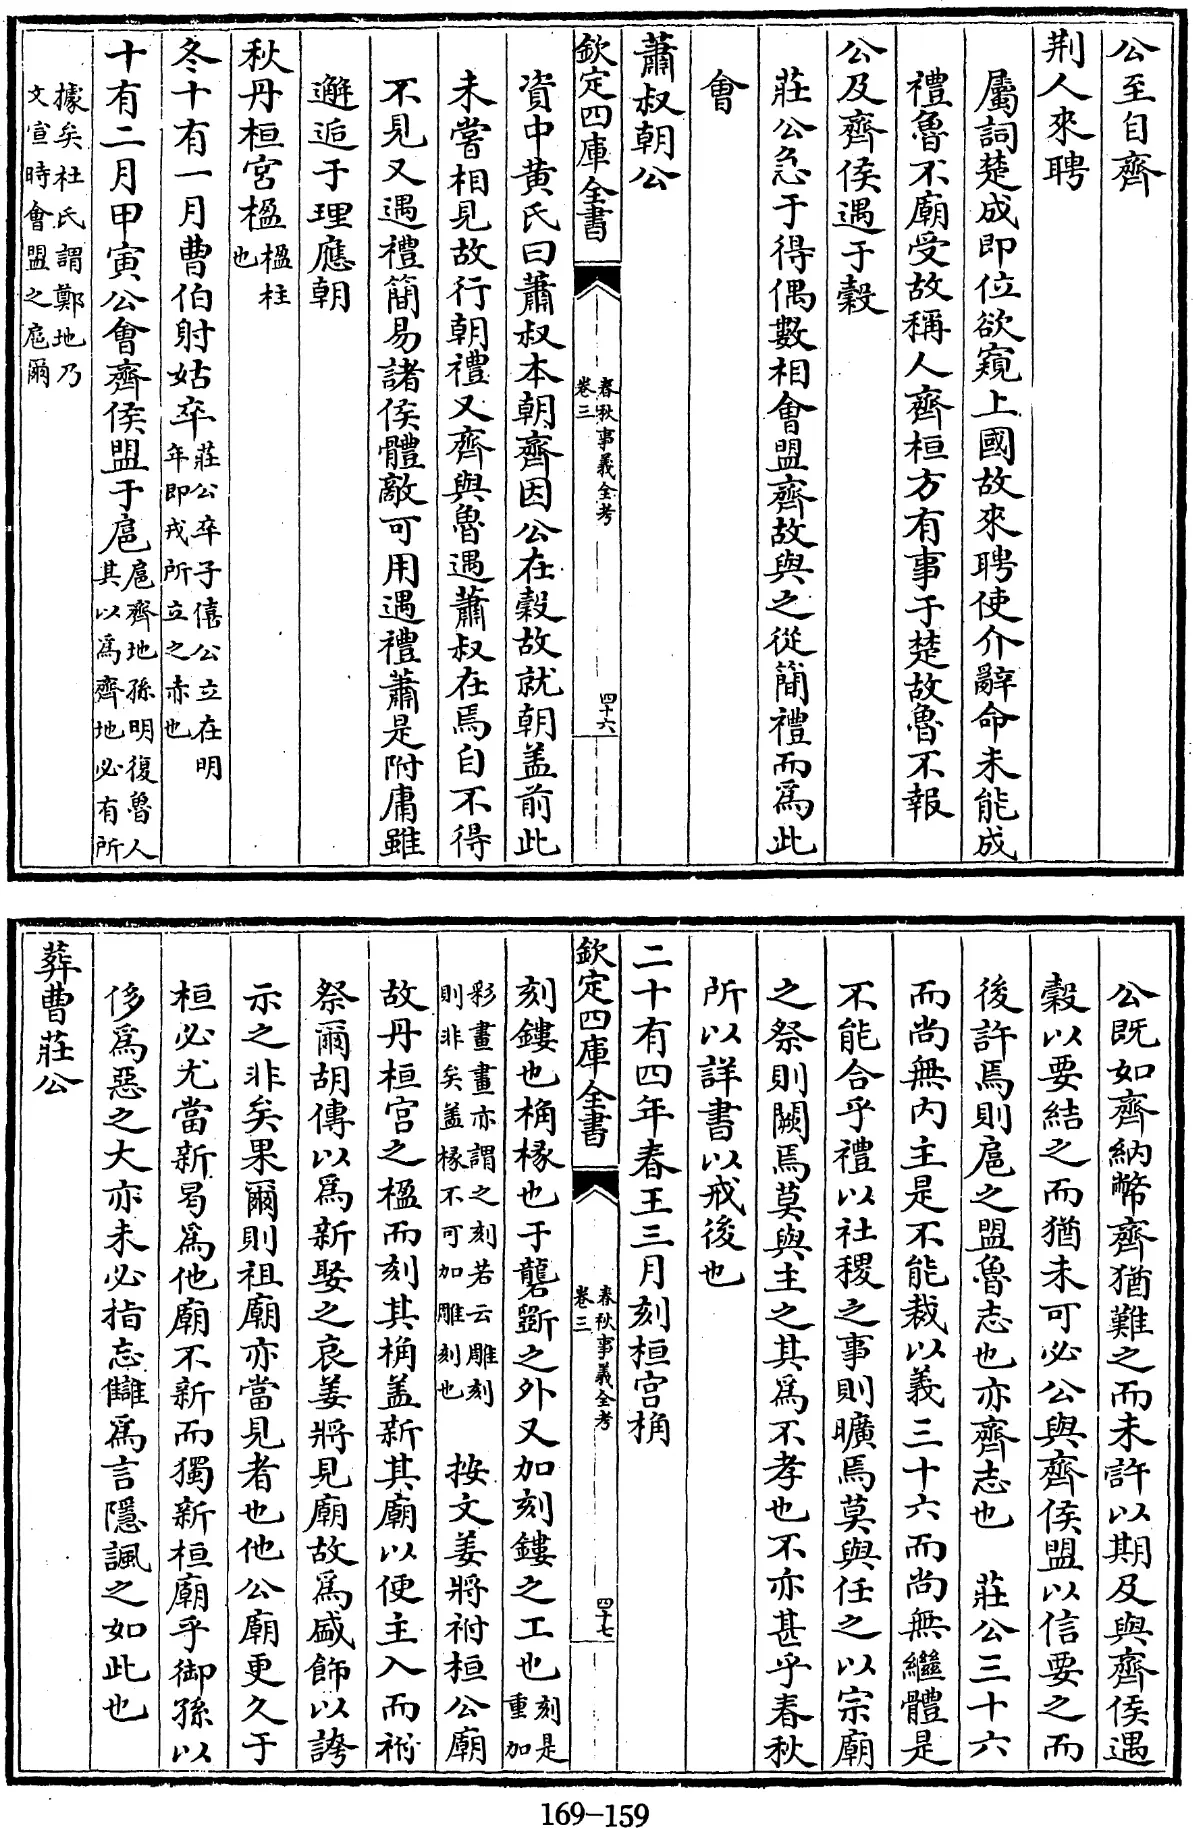 公至自齊
荆人來聘
屬詞楚成即位欲窺上國故來聘使介辭命未能成
禮魯不廟受故稱人齊桓方有事于楚故魯不報
公及齊侯遇于穀
莊公急于得偶數相會盟齊故與之從簡禮而爲此
會
蕭叔朝公
欽定四庫全書
春秋事義全考
卷三
四十六
資中黄氏曰蕭叔本朝齊因公在穀故就朝盖前此
未嘗相見故行朝禮又齊與魯遇蕭叔在焉自不得
不見又遇禮簡易諸侯體敵可用遇禮蕭是附庸雖
邂逅于理應朝
秋丹桓宮楹楹柱
也
冬十有一月曹伯射姑卒莊公卒子僖公立在明
年即戎所立之赤也
十有二月甲寅公會齊侯盟于扈扈齊地孫明復魯人
其以爲齊地必有所
據矣杜氏謂鄭地乃
文宣時會盟之扈爾
公既如齊納幣齊猶難之而未許以期及與齊侯遇
穀以要結之而猶未可必公與齊侯盟以信要之而
後許焉則扈之盟魯志也亦齊志也 莊公三十六
而尚無内主是不能裁以義三十六而尚無繼體是
不能合乎禮以社稷之事則曠焉莫與任之以宗廟
之祭則闕焉莫與主之其爲不孝也不亦甚乎春秋
所以詳書以戒後也
二十有四年春王三月刻桓宮桷
欽定四庫全書
春秋事義全考
卷三
四十七
刻鏤也桷椽也于礱斲之外又加刻鏤之工也刻是
重加
彩畫畫亦謂之刻若云雕刻
則非矣盖椽不可加雕刻也 按文姜將祔桓公廟
故丹桓宮之楹而刻其桷盖新其廟以便主入而祔
祭爾胡傳以爲新娶之哀姜將見廟故爲盛飾以誇
示之非矣果爾則祖廟亦當見者也他公廟更久于
桓必尤當新曷爲他廟不新而獨新桓廟乎御孫以
侈爲惡之大亦未必指忘讎爲言隱諷之如此也
葬曹莊公
169-159